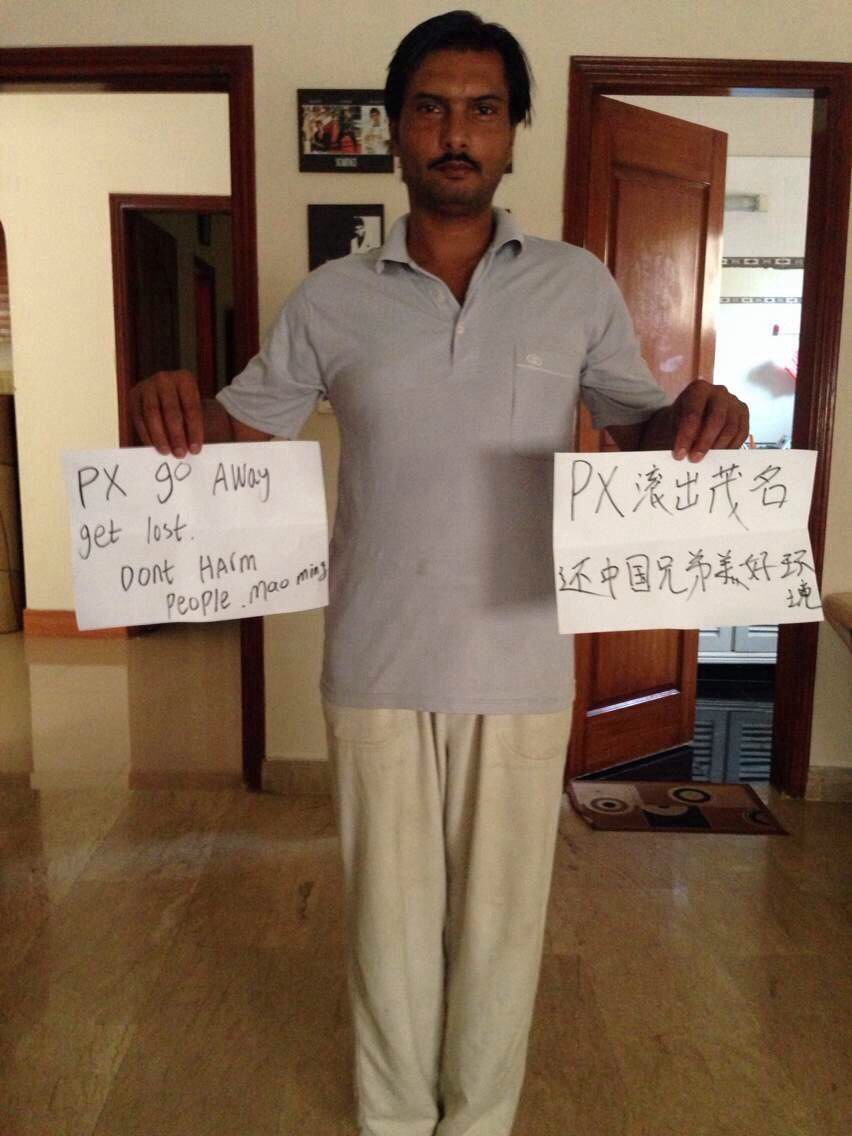 PX go AWay
get lost.
Dont HArm
PEOPLE. mao ming
PX 滚出茂名
还中国兄弟美好环
境